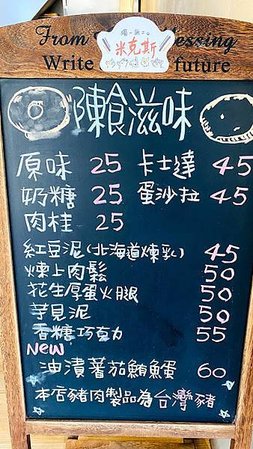 From Blessing
獨一無二
米克斯
Write future
陳食滋味
原味 25 卡士達 45
奶糖 25 蛋沙拉 45
肉桂 25
紅豆泥(北海道煉乳) 45
煉上肉鬆 50
花生厚蛋火腿 50
芋見泥 50
香糖巧克力 55
New
油漬蕃茄鮪鱷 60
本店豬肉製品為台灣豬